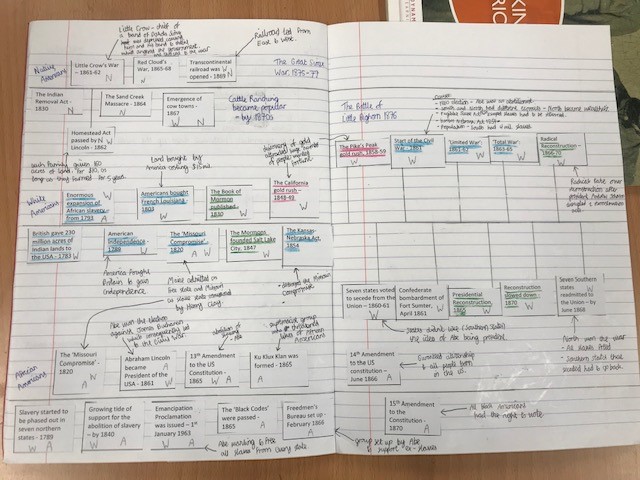 KIN
RIC
Little Crow - chief of
a band of Dakota Sioux
Railroad led from
East to West.
Native
Americans
Little Crow's War -
1861-62
N
Red Cloud's
War, 1865-68
W N
Transcontinental
railroad was
opened - 1869
W
N
The Great Sioux
War, 1876-77
The Indian
Removal Act -
1830
N
The Sand Creek
Massacre - 1864
N
Emergence of
cow towns -
1867
W N
Cattle Ranching
became popular
- by 1870s
Homestead Act
passed by N
Lincoln - 1862
W
each family given 160
acres of land for $10, as
long as they farmed for 5 years.
Land bought by
America costing $15mil
discovery of gold
attracted large number
of people wanted
fortune
White
Americans
Enormous
expansion of
African slavery
from 1793
A
Americans bought
French Louisiana -
1803
W
The Book of
Mormon
published - 1830
W
The California
gold rush -
1848-49
W
British gave 230
million acres of
Indian lands to
the USA - 1783
W
American
Independence -
1789
W
The 'Missouri
Compromise', -
1820
A W
The Mormons
founded Salt Lake
City, 1847
W
The Kansas
Nebraska Act,
1854
America fought
Britain to gain
Independence
Maine admitted as
free state and Missouri
as slave state compromised
by Henry Clay.
- stronger the Missouri
Compromise
Abe won the election
against James Buchanan
which consequently led
to the Civil War
abolition of
slavery
African
Americans
The 'Missouri
Compromise' -
1820
W
A
Abraham Lincoln
became
President of the
USA - 1861
W
13th Amendment
to the US
constitution -
1865
W A
Ku Klux Klan was
formed - 1865
A
Slavery started to
be phased out in
seven northern
states - 1789
W A
Growing tide of
support for the
abolition of slavery
- by 1840
W A
Emancipation
Proclamation
was issued - 1st
January 1963
W A
The 'Black Codes'
were passed -
1865
A
Freedmen's
Bureau set up -
February 1866
A
Abe wanting to free
all slaves from every state
The Battle of
Little Bighorn 1876
Causes:
- 1860 election - Abe was an abolitionist
- Population - South had 4 mil slaves
The Pike's Peak
gold rush, 1858-59
Start of the Civil
War - 1861
'Limited War'
1861-62
'Total War'
1863-65
Radical
Reconstruction -
Seven states voted
to secede from the
Union - 1860-61
Confederate
bombardment of
Fort Sumter,
April 1861
Presidential
Reconstruction,
1865
Reconstruction
slowed down -
1870
Seven Southern
states
readmitted to
the Union -
June 1868
states didn't like (Southern states)
the idea of Abe being president
North won the war
- All slaves freed
- Southern states that
seceded had to go back.
14th Amendment to
the US constitution -
June 1866
A
Ensured citizenship
to all people born
in the US.
15th Amendment
to the
Constitution -
1870
A
All black Americans
had the right to vote
group set up by Abe
to support "ex-slaves"